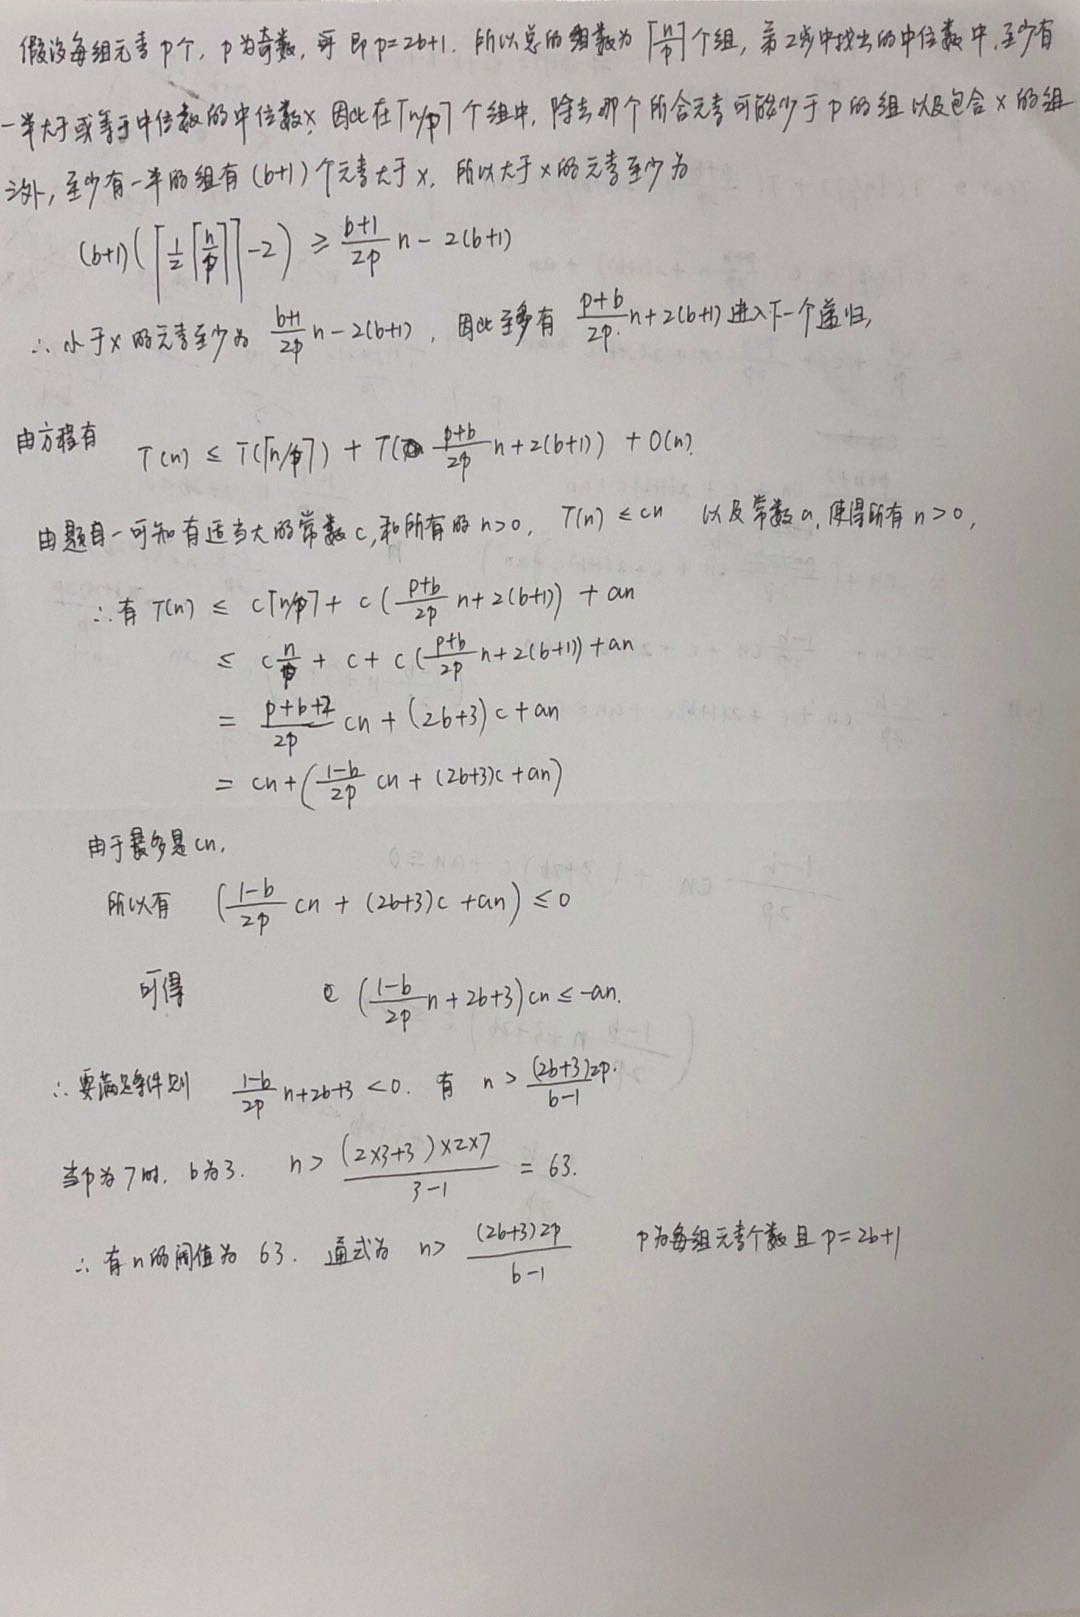 假设每组元素p个, p为奇数, 可 即p=2b+1. 所以总的组数为⌈n/p⌉个组, 第2步中找出的中位数中, 至少有
一半大于或等于中位数的中位数x. 因此在⌈n/p⌉个组中, 除去那个所含元素可能少于p的组以及包含x的组
之外, 至少有一半的组有(b+1)个元素大于x, 所以大于x的元素至少为
(b+1)(⌈1/2⌈n/p⌉⌉-2) ≥ (b+1)/2p n - 2(b+1)
∴ 小于x的元素至少为 (b+1)/2p n-2(b+1), 因此至多有 (p+b)/2p n+2(b+1)进入下一个递归,
由方程有 T(n) ≤ T(⌈n/p⌉) + T((p+b)/2p n+2(b+1)) + O(n).
由题目一可知有适当大的常数c,和所有的n>0, T(n) ≤ cn 以及常数a, 使得所有n>0,
∴有 T(n) ≤ c⌈n/p⌉ + c((p+b)/2p n+2(b+1)) + an
≤ c n/p + c + c((p+b)/2p n+2(b+1))+an
= (p+b+2)/2p cn + (2b+3)c+an
= cn+((1-b)/2p cn + (2b+3)c+an)
由于最多是cn,
所以有 ((1-b)/2p cn + (2b+3)c +an) ≤ 0
可得 ((1-b)/2p n+2b+3)cn ≤ -an.
∴要满足条件则 (1-b)/2p n+2b+3 <0. 有 n > (2b+3)2p/(b-1)
当p为7时, b为3. n > (2×3+3)×2×7/(3-1) = 63.
∴有n的阈值为 63. 通式为 n> (2b+3)2p/(b-1) p为每组元素个数且p=2b+1